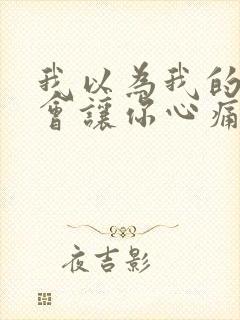 我以為我的
會讓你心痛
夜吉影